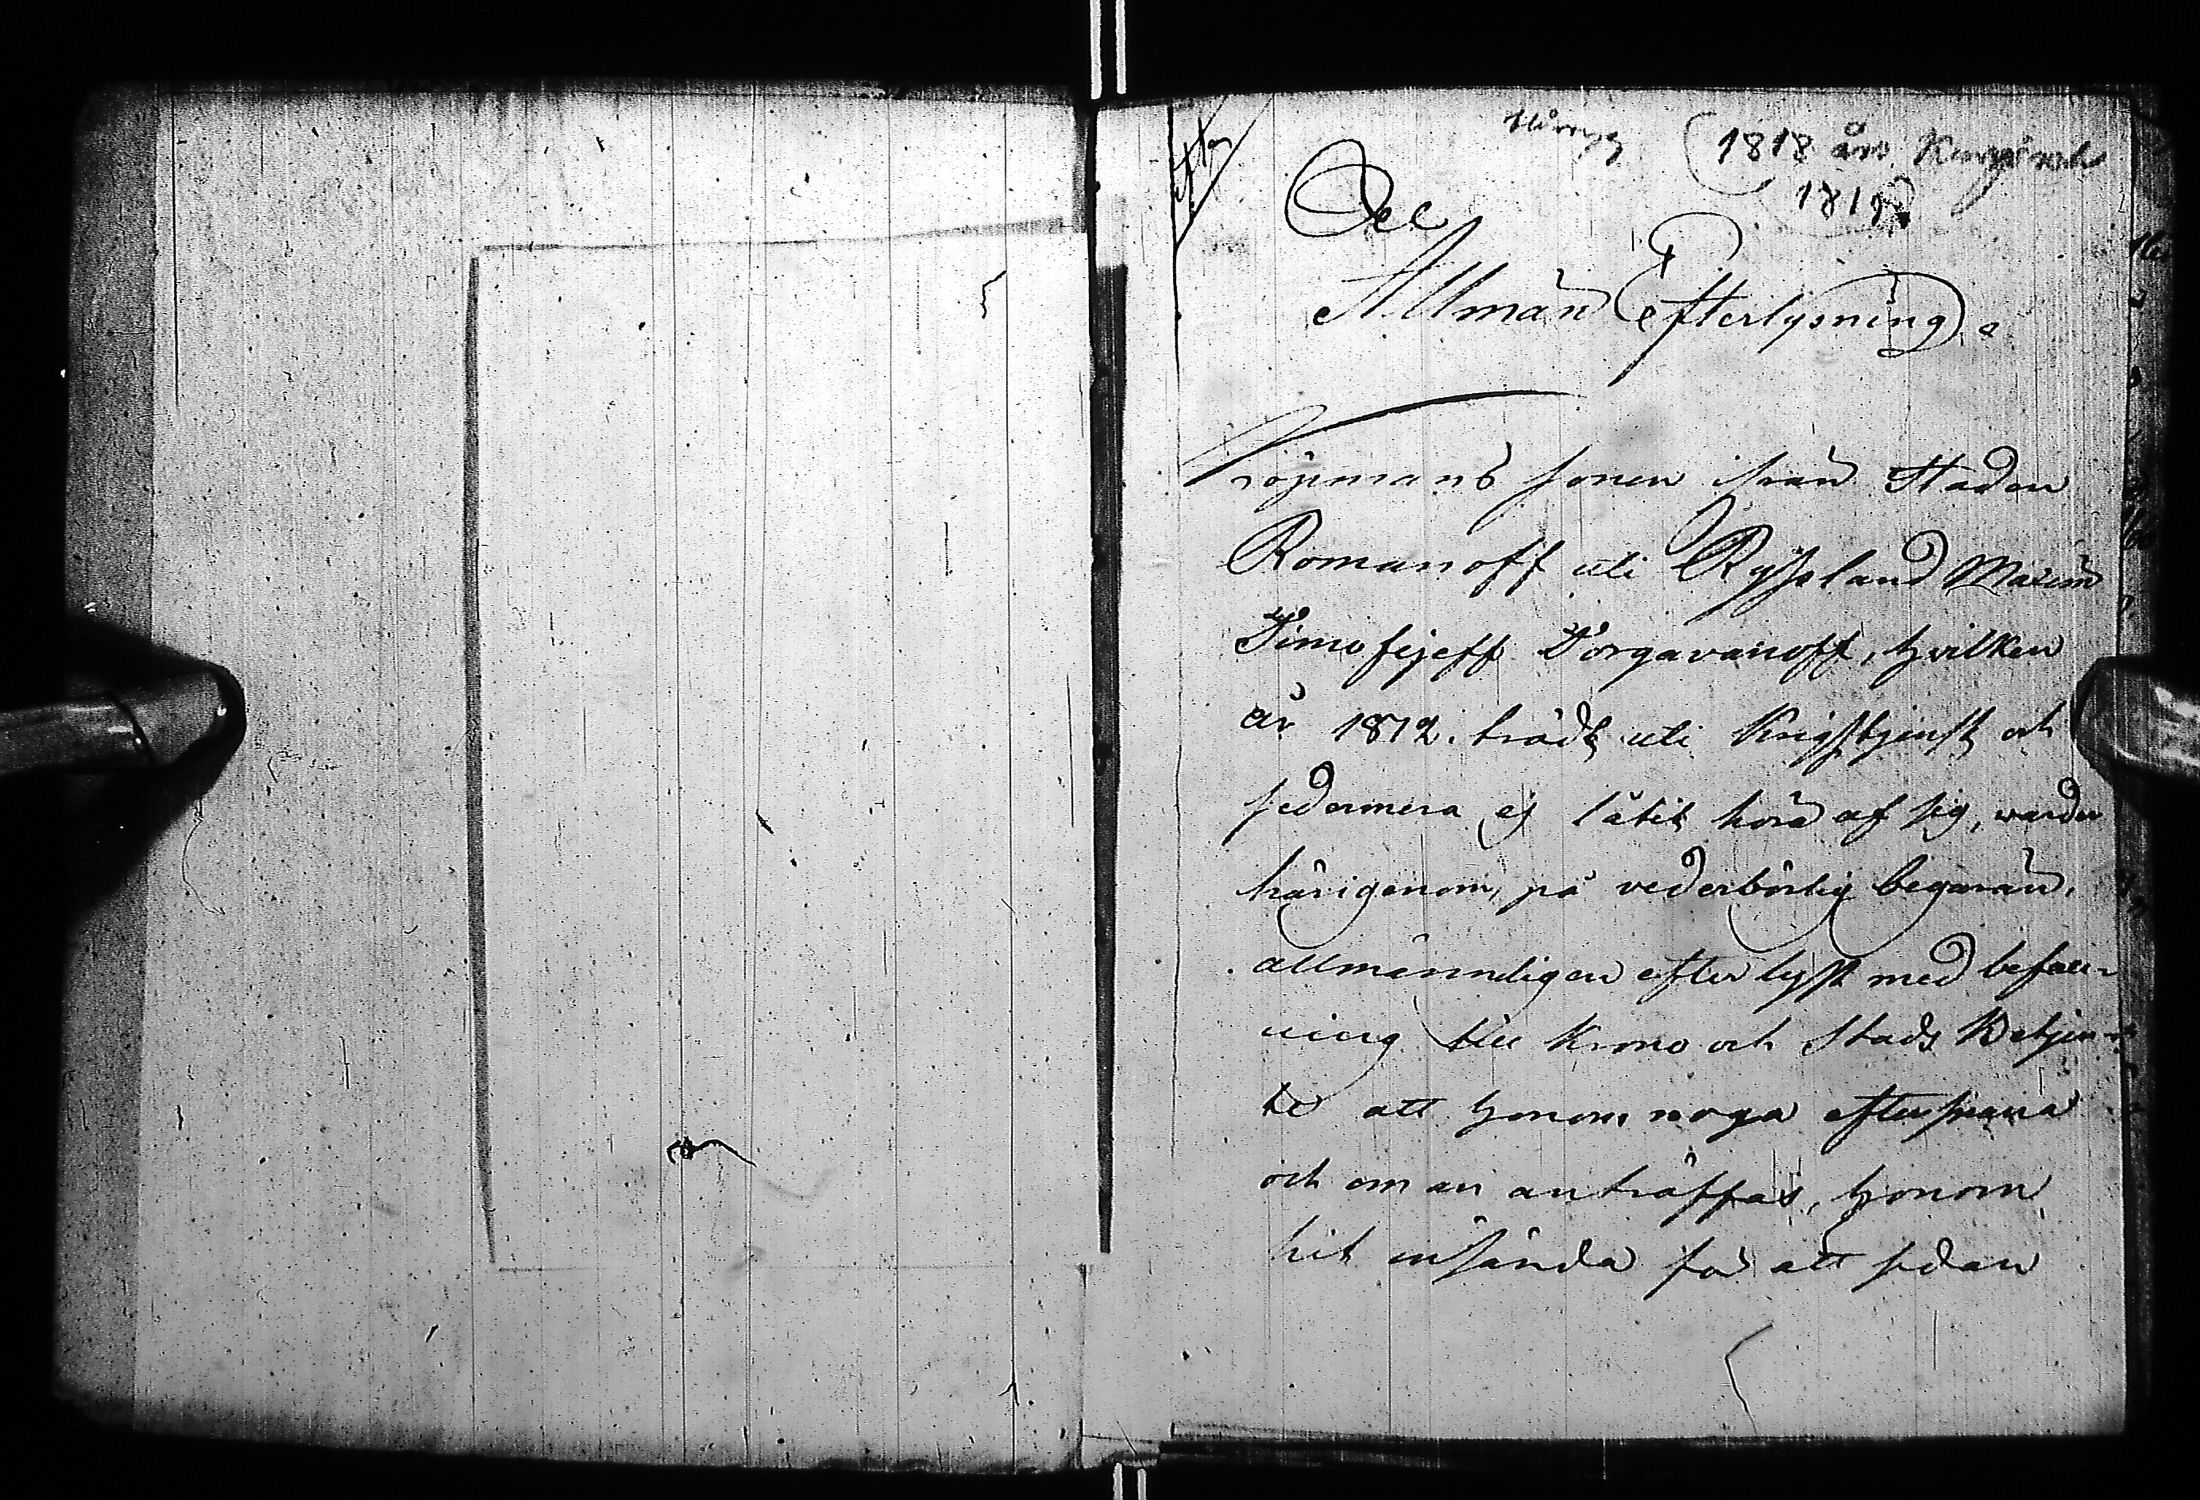 1818 års
1819
Allmän Efterlysning.
Köpmans sonen ifrån Staden
Romanoff uti Ryssland Maxim
Timofejeff Torgavanoff, hvilken
år 1812. trädt uti Krigstjenst och
sedermera ej låtit höra af sig, warder
härigenom, på vederbörlig begäran,
allmänneligen efterlyst med befall-
ning till Krono och Stads Betjen-
te att honom noga efterspana
och om an anträffas, honom
hit insända för att sedan